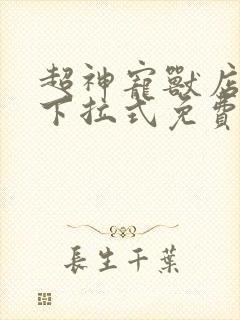 超神寵獸店
下拉式免費
長生千葉